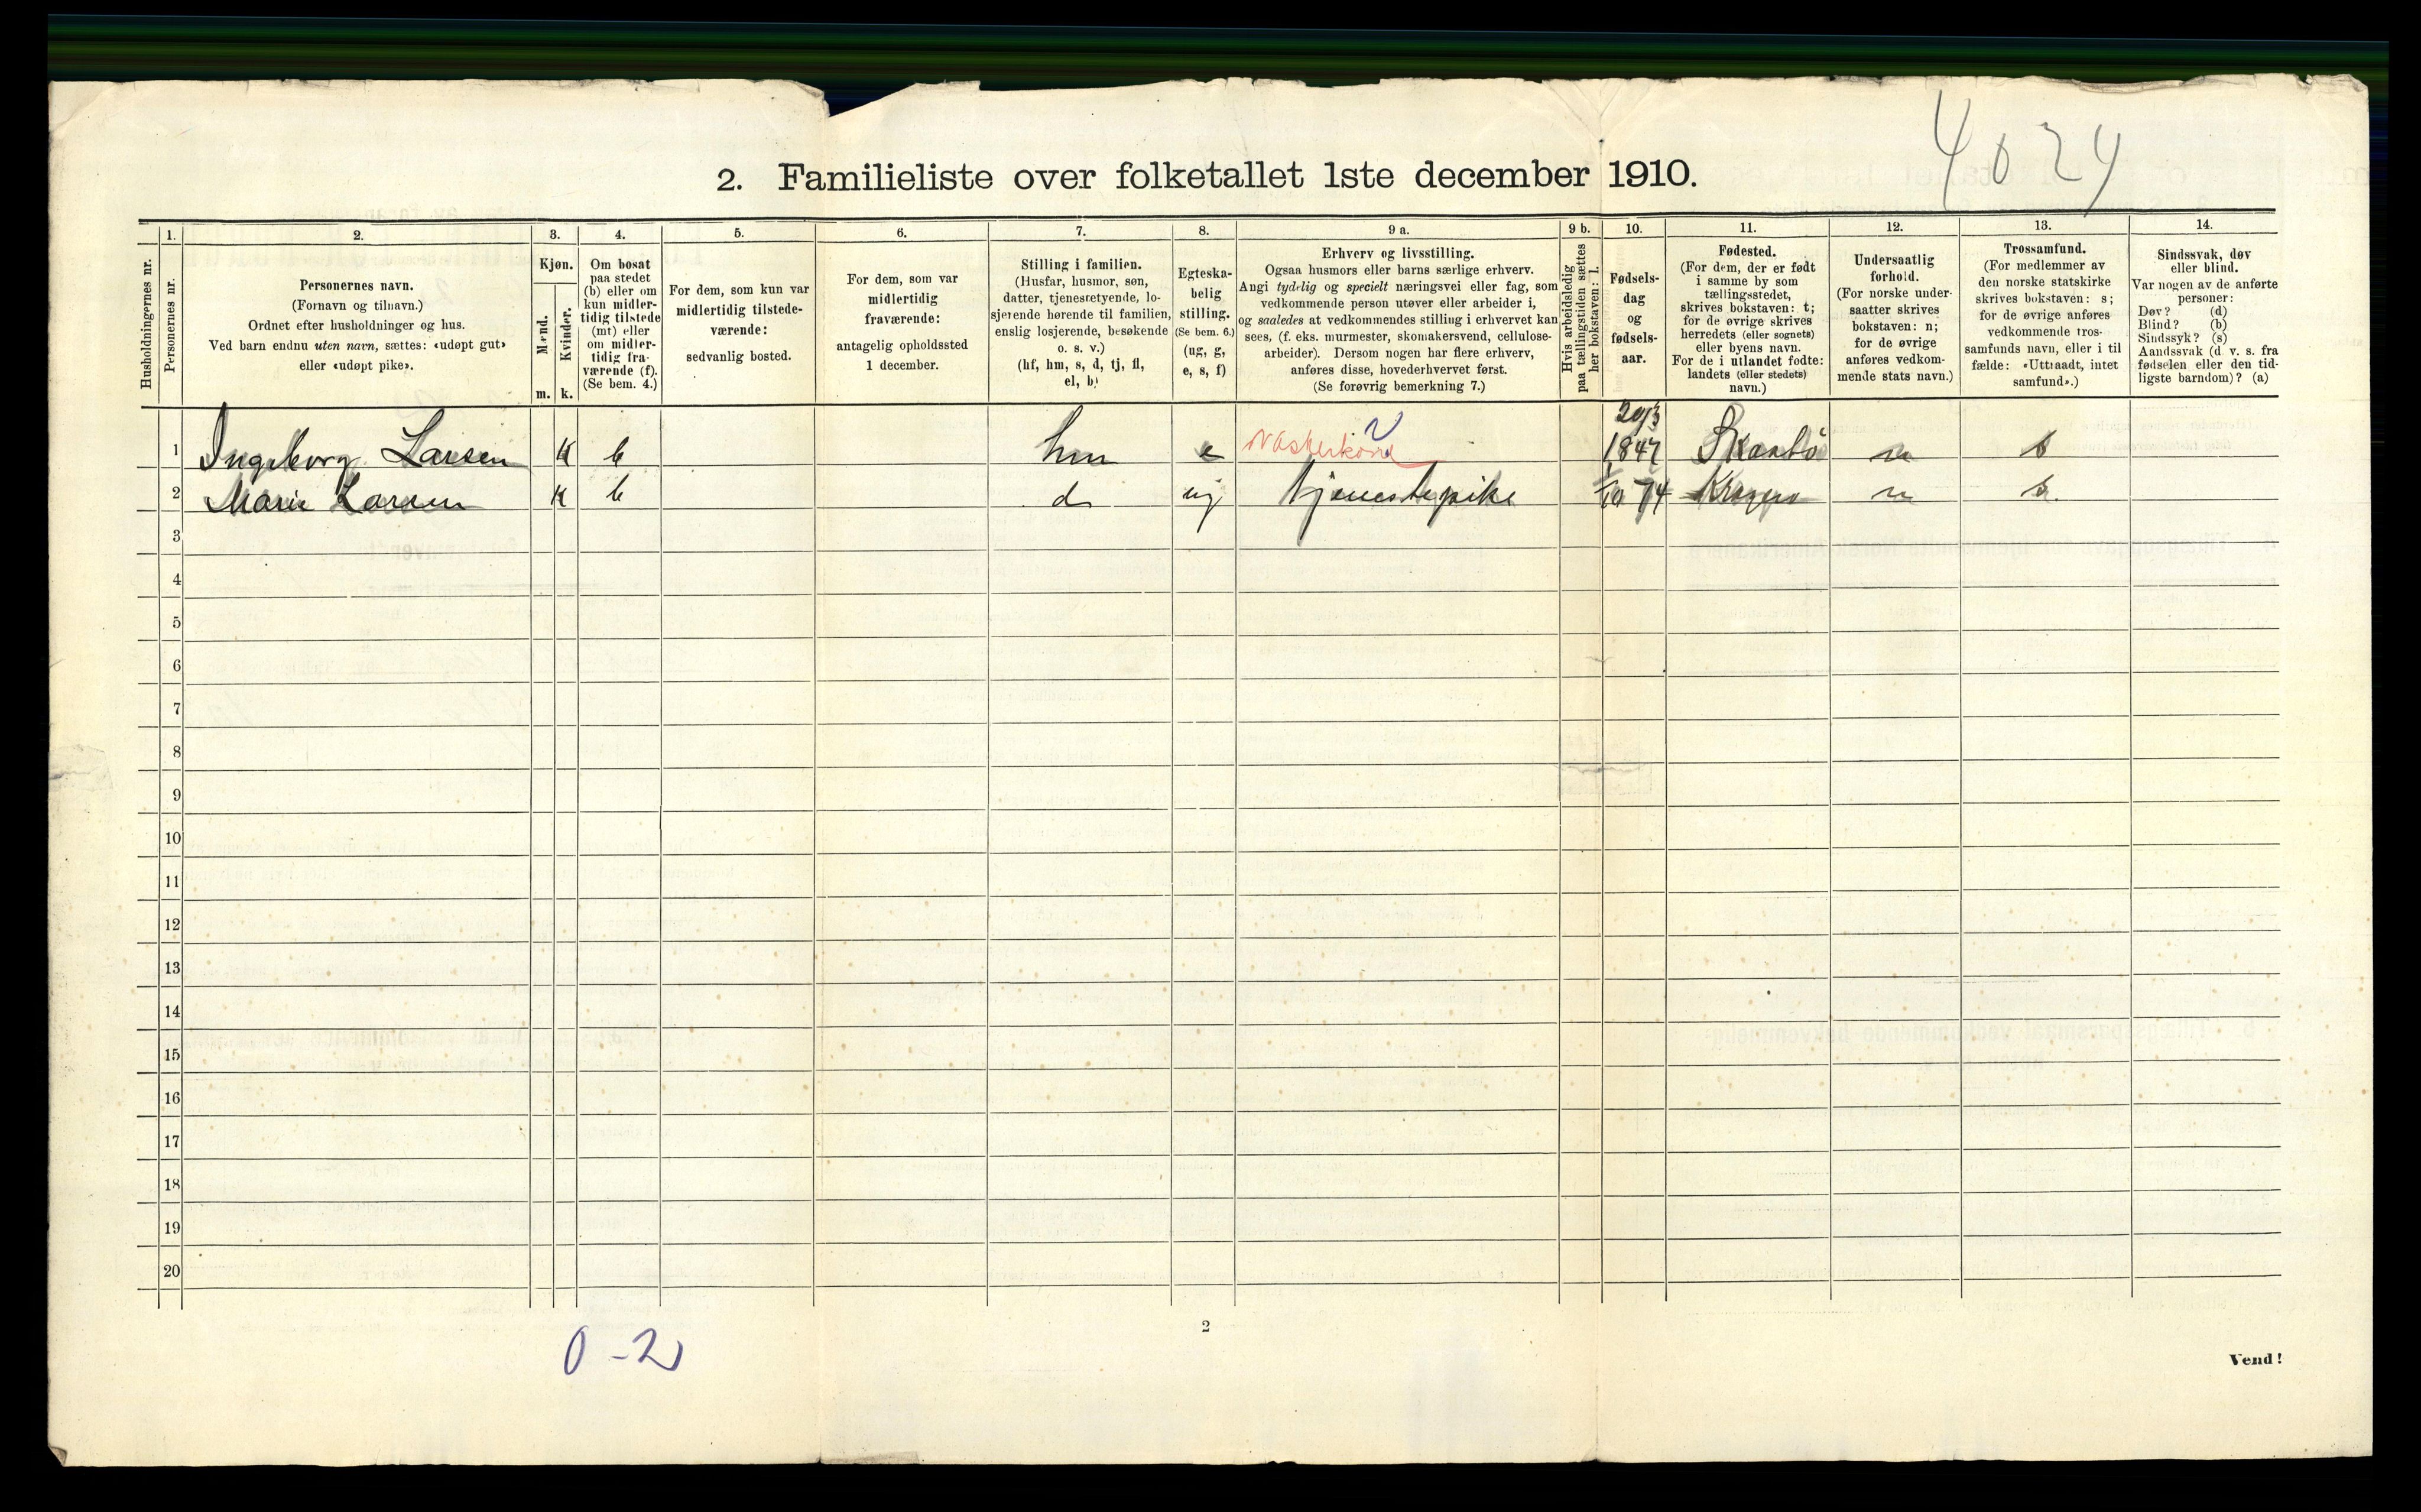 4024
2. Familieliste over folketallet 1ste december 1910.
1. 2. 3. 4. 5. 6. 7. 8. 9 a. 9 b. 10. 11. 12. 13. 14.
Husholdningernes nr.
Personernes nr.
Personernes navn.
(Fornavn og tilnavn.)
Ordnet efter husholdninger og hus.
Ved barn endnu uten navn, sættes: «udøpt gut»
eller «udøpt pike».
Kjøn.
Mænd.
Kvinder.
m. k.
Om bosat
paa stedet
(b) eller om
kun midler-
tidig tilstede
(mt) eller
om midler-
tidig fra-
værende (f).
(Se bem. 4.)
For dem, som kun var
midlertidig tilstede-
værende:
sedvanlig bosted.
For dem, som var
midlertidig
fraværende:
antagelig opholdssted
1 december.
Stilling i familien.
(Husfar, husmor, søn,
datter, tjenestetyende, lo-
sjerende hørende til familien,
enslig losjerende, besøkende
o. s. v.)
(hf, hm, s, d, tj, fl,
el, b)
Egteska-
belig
stilling.
(Se bem. 6.)
(ug, g,
e, s, f)
Erhverv og livsstilling.
Ogsaa husmors eller barns særlige erhverv.
Angi tydelig og specielt næringsvei eller fag, som
vedkommende person utøver eller arbeider i,
og saaledes at vedkommendes stilling i erhvervet kan
sees, (f. eks. murmester, skomakersvend, cellulose-
arbeider). Dersom nogen har flere erhverv,
anføres disse, hovederhvervet først.
(Se forøvrig bemerkning 7.)
Hvis arbeidsledig
paa tællingstiden sættes
her bokstaven: l.
Fødsels-
dag
og
fødsels-
aar.
Fødested.
(For dem, der er født
i samme by som
tællingsstedet,
skrives bokstaven: t;
for de øvrige skrives
herredets (eller sognets)
eller byens navn.
For de i utlandet fødte:
landets (eller stedets)
navn.)
Undersaatlig
forhold.
(For norske under-
saatter skrives
bokstaven: n;
for de øvrige
anføres vedkom-
mende stats navn.)
Trossamfund.
(For medlemmer av
den norske statskirke
skrives bokstaven: s;
for de øvrige anføres
vedkommende tros-
samfunds navn, eller i til
fælde: «Uttraadt, intet
samfund».)
Sindssvak, døv
eller blind.
Var nogen av de anførte
personer:
Døv? (d)
Blind? (b)
Sindssyk? (s)
Aandssvak (d. v. s. fra
fødselen eller den tid-
ligste barndom)? (a)
1 Ingeborg Larsen k b hm e Vaskekone 29/3 1847 n s
2 Marie Larsen k b d ug tjenestepike 74 n s
3
4
5
6
7
8
9
10
11
12
13
14
15
16
17
18
19
20
0 - 2
2
Vend!